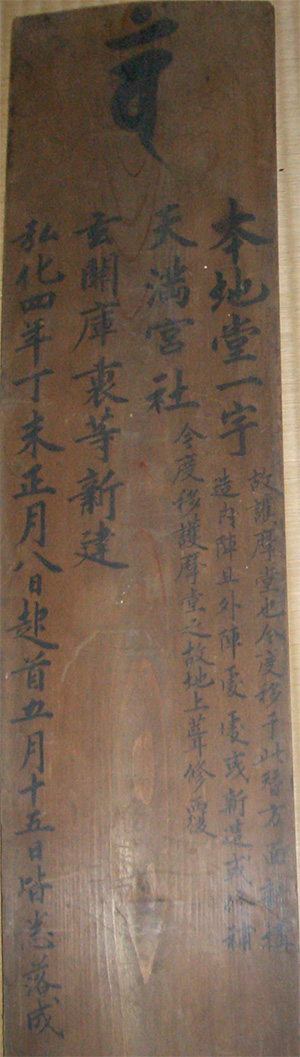 本地堂一宇
故護摩堂也今度移于此替方面新構
造内陣且外陣處處或新造或修補
天満宮社
今度移護摩堂之故地上葺修覆
玄関庫裏等新建
弘化四年丁未正月八日起首五月十五日皆悉落成